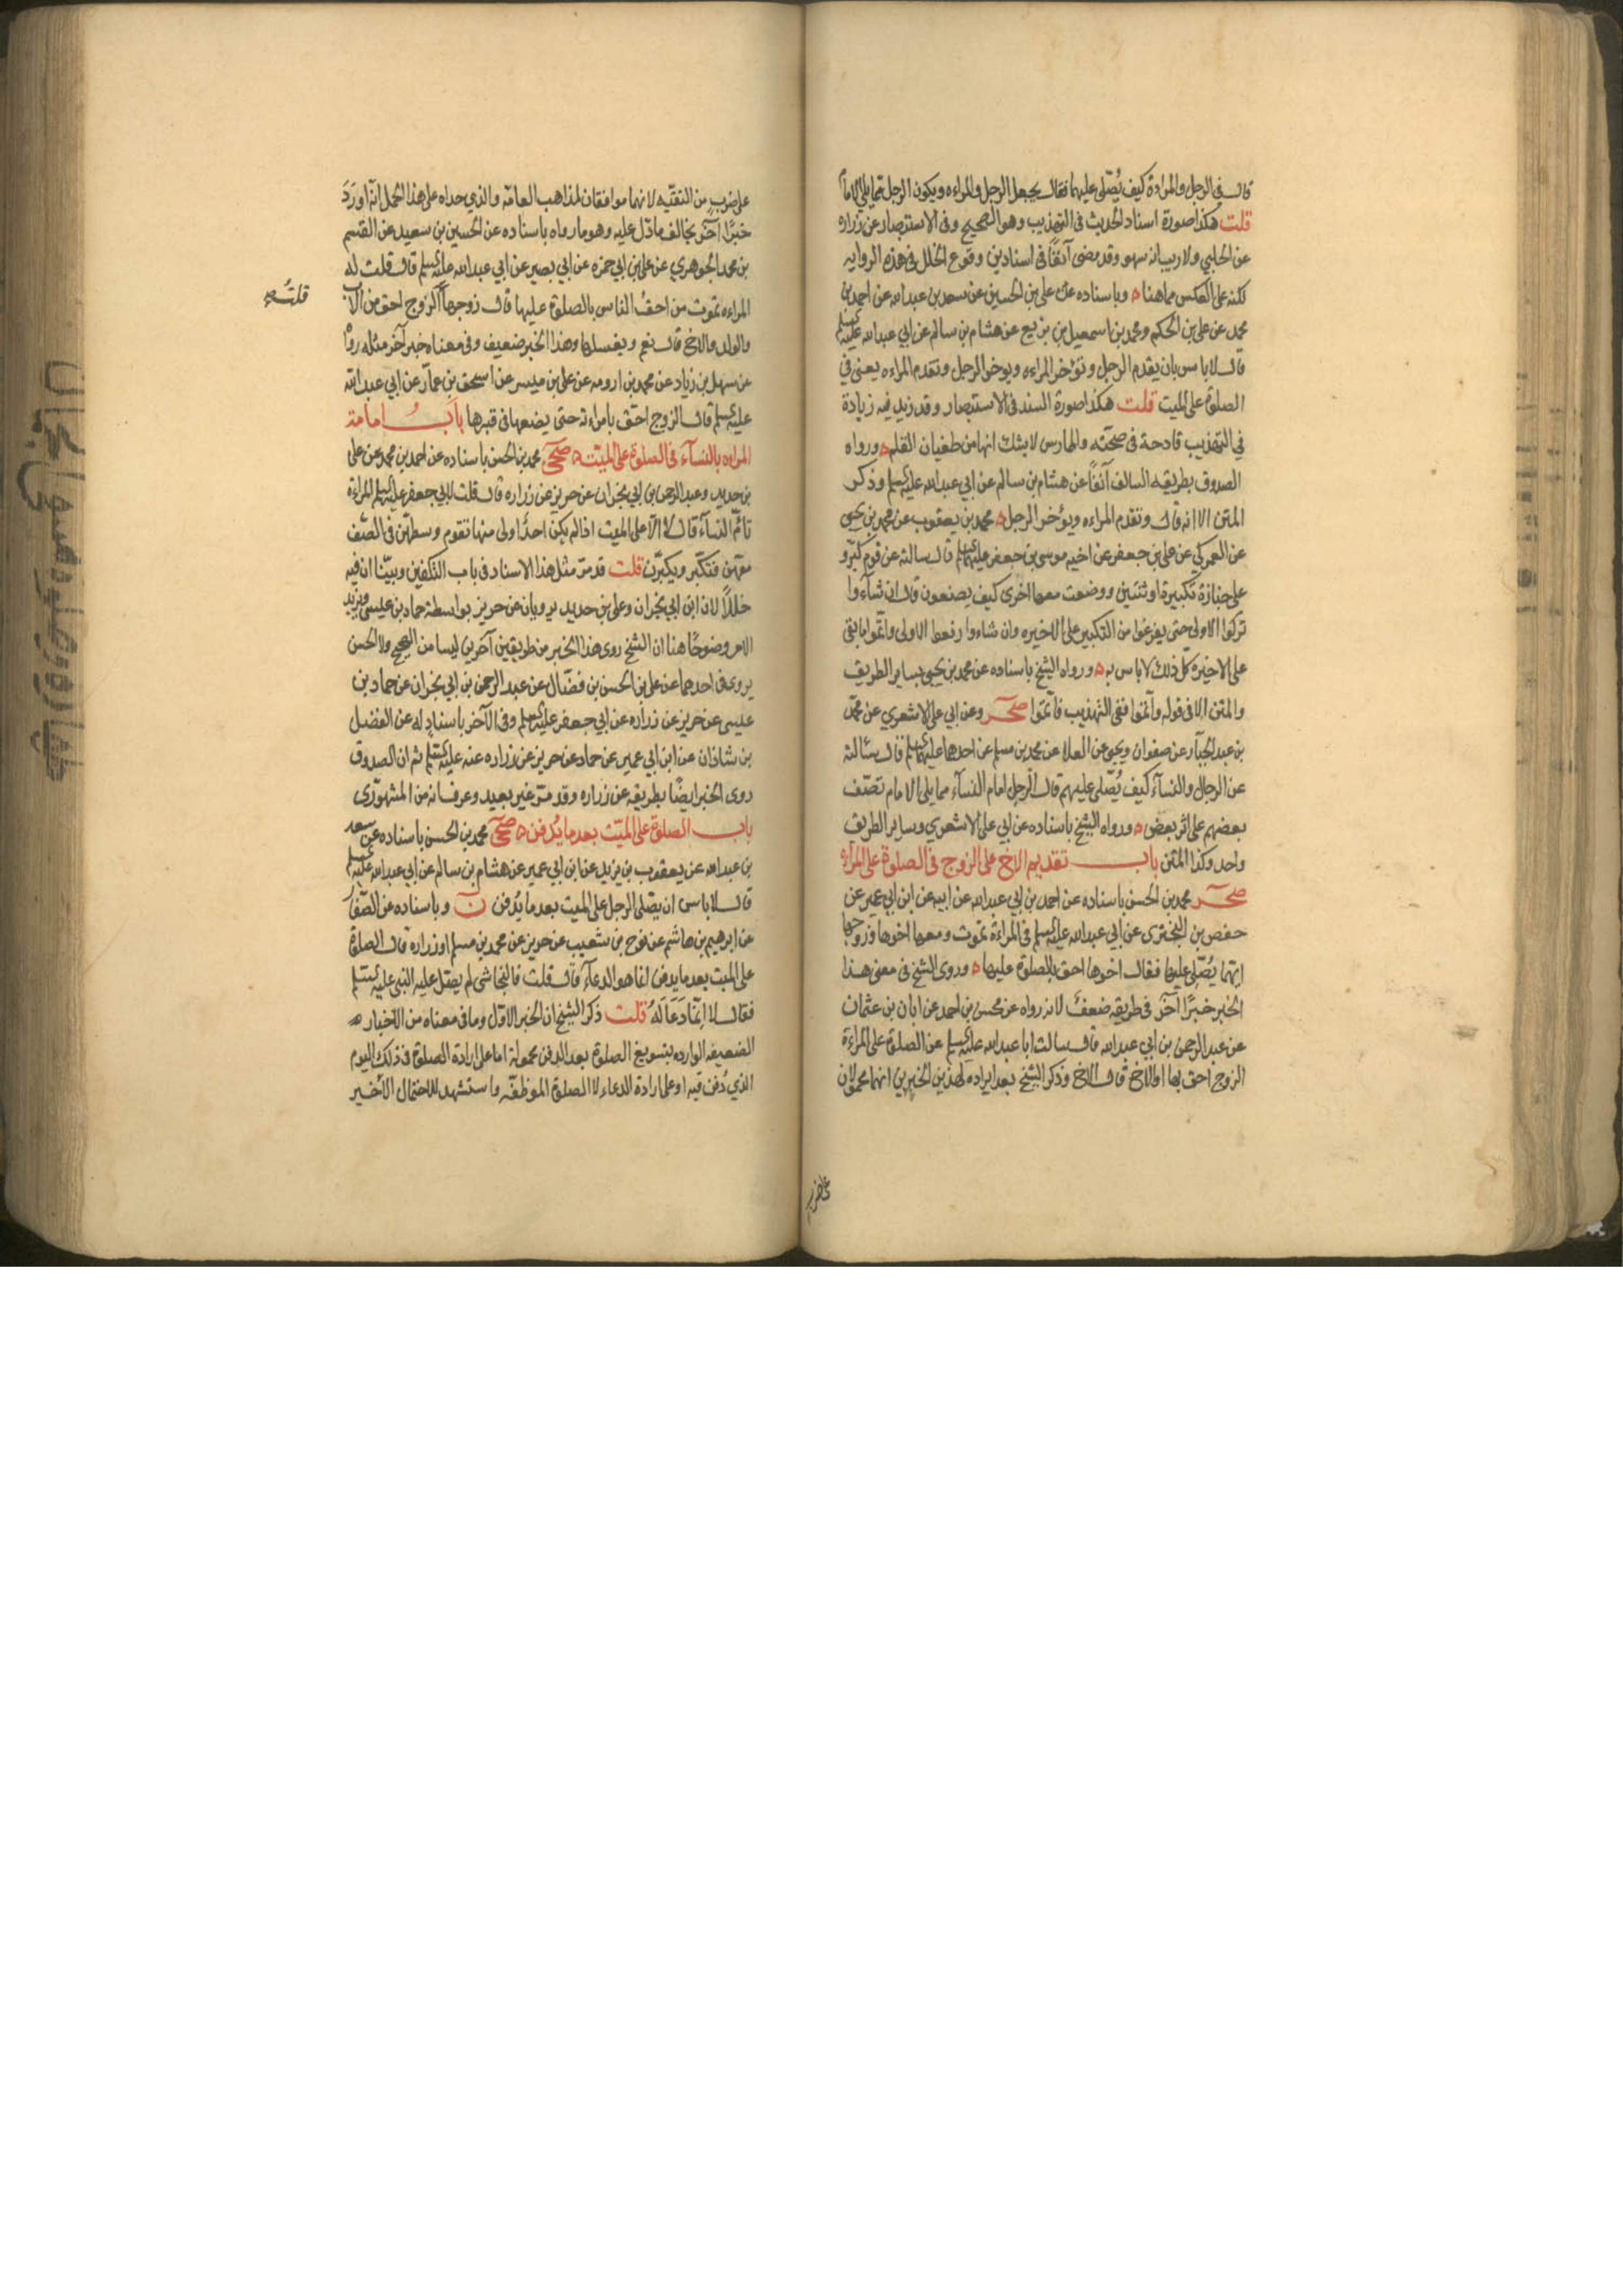 قال في الرجل والمراة كيف يُصَلّى عليهما فقال يجعل الرجل والمراءه ويكون الرجل مما يلي الامام
قلت هكذا صورة اسناد الحديث في التهذيب وهو الصحيح وفي الاستبصار عن زراره
عن الحلبي ولا ريب انه سهو وقد مضى آنفًا في اسنادين وقوع الخلل في هذه الروايه
لكنه على العكس مما هنا وباسناده عن علي بن الحسين عن سعد بن عبدالله عن احمد بن
محمد عن علي بن الحكم ومحمد بن اسمعيل بن بزيع عن هشام بن سالم عن ابي عبدالله عليه السلم
قال لا باس بان يقدم الرجل وتؤخر المراءه ويوخر الرجل وتقدم المراءه يعني في
الصلوة على الميت قلت هكذا صورة السند في الاستبصار وقد زيد فيه زيادة
في التهذيب قادحة في صحته والممارس لا يشك انها من طغيان القلم ورواه
الصدوق بطريقه السالف آنفًا عن هشام بن سالم عن ابي عبدالله عليه السلم وذكر
المتن الا انه قال وتقدم المراءه ويؤخر الرجل محمد بن يعقوب عن محمد بن يحيى
عن العمركي عن علي بن جعفر عن اخيه موسى بن جعفر عليهما السلم قال سالته عن قوم كبّروا
على جنازة تكبيرة او ثنتين ووضعت معها اخرى كيف يصنعون قال ان شآءوا
تركوا الاولى حتى يفرغوا من التكبير على الاخيره وان شاءوا رفعوا الاولى واتمّوا ما بقي
على الاخيرة كلّ ذلك لا باس به ورواه الشيخ باسناده عن محمد بن يحيى بساير الطريق
والمتن الا في قوله وأتمّوا ففي التهذيب فأتمّوا صحر وعن ابي علي الاشعري عن محمد
بن عبد الجبّار عن صفوان ويحيى عن العلا عن محمد بن مسلم عن احدهما عليهما السلم قال سئالته
عن الرجال والنسآء كيف يُصَلّى عليهم قال الرجل امام النسآء مما يلي الامام تصَفّ
بعضهم على اثر بعض ورواه الشيخ باسناده عن ابي علي الاشعري وساير الطريق
واحد وكذا المتن باب تقديم الاخ على الزوج في الصلوة على المراءة
صحر محمد بن الحسن باسناده عن احمد بن ابي عبدالله عن ابيه عن ابن ابي عمير عن
حفص بن البختري عن ابي عبدالله عليه السلم في المراءة تموت ومعها اخوها وزوجها
ايّهما يُصَلّي عليها فقال اخوها احق بالصلوة عليها وروى الشيخ في معنى هذا
الخبر خبرًا آخر في طريقه ضعف لانه رواه عن محسن بن احمد عن ابان بن عثمان
عن عبد الرحمن بن ابي عبدالله قال سالت ابا عبدالله عليه السلم عن الصلوة على المراءة
الزوج احق بها او الاخ قال الاخ وذكر الشيخ بعد ايراده لهذين الخبرين انهما محمولان
على ضرب من التقيّه لانهما موافقان لمذاهب العامّه والذي حداه على هذا الحمل انّه اورَدَ
خبرًا آخر يخالف ما دّل عليه وهو ما رواه باسناده عن الحسين بن سعيد عن القسم
بن محمد الجوهري عن علي بن ابي حمزه عن ابي بصير عن ابي عبدالله عليه السلم قال قلت له
المراءه تموت من احقّ الناس بالصلوة عليها قال زوجها الزوج احق من الاب
والولد والاخ قال نعم ويغسلها وهذا الخبر ضعيف وفي معناه خبر آخر مثله رواه
عن سهل بن زياد عن محمد بن ارومه عن علي بن ميسر عن اسحق بن عمّار عن ابي عبدالله
عليه السلم قال الزوج احق بامراءته حتى يضعها في قبرها بابُ امامة
المراءه بالنسآء في الصلوة على الميّت صحى محمد بن الحسن باسناده عن احمد بن محمد عن علي
بن حديد وعبد الرحمن بن ابي نجران عن حريز عن زراره قال قلت لابي جعفر عليه السلم المراءة
تاُمّ النسآء قال لا الّا على الميت اذا لم يكن احدًا اولى منها تقوم وسطهنّ في الصّف
معهنّ فتكبّر ويكبّرن قلت قد مرّ مثل هذا الاسناد في باب التكفين وبيّنا ان فيه
خللًا لان ابن ابي نجران وعلي بن حديد يرويان عن حريز بواسطة حماد بن عيسى ويزيد
الامر وضوحًا هنا ان الشيخ روى هذا الخبر من طريقين آخرين ليسا من الصحيح ولا الحسن
يروي في احدهما عن علي بن الحسن بن فضّال عن عبد الرحمن بن ابي نجران عن حماد بن
عيسى عن حريز عن زراره عن ابي جعفر عليه السلم وفي الآخر باسنادٍ له عن الفضل
بن شاذان عن ابن ابي عمير عن حماد عن حريز عن زراره عنه عليه السلم ثم ان الصدوق
روى الخبر ايضًا بطريقه عن زراره وقد مرّ غير بعيد وعرف انه من المشهوري
باب الصلوة على الميّت بعد ما يُدفن صحى محمد بن الحسن باسناده عن سعد
بن عبدالله عن يعقوب بن يزيد عن ابن ابي عمير عن هشام بن سالم عن ابي عبدالله عليه السلم
قال لا باس ان يصّلي الرجل على الميت بعد ما يُدفن ن وباسناده عن الصّفّار
عن ابرهيم بن هاشم عن نوح بن شعيب عن حريز عن محمد بن مسلم او زراره قال الصلوة
على الميت بعد ما يدفن انما هو الدعآء قال قلت فالنجاشي لم يصّل عليه النبي عليه السلم
فقال لا انّما دَعَا لَهُ قلت ذكر الشيخ ان الخبر الاوّل وما في معناه من الاخبار
الضعيفه الوارده بتسويغ الصلوة بعد الدفن محمولة اما على ارادة الصلوة في ذلك اليوم
الذي دُفن فيه او على ارادة الدعاء لا الصلوة الموظّفه واستشهد للاحتمال الاخير